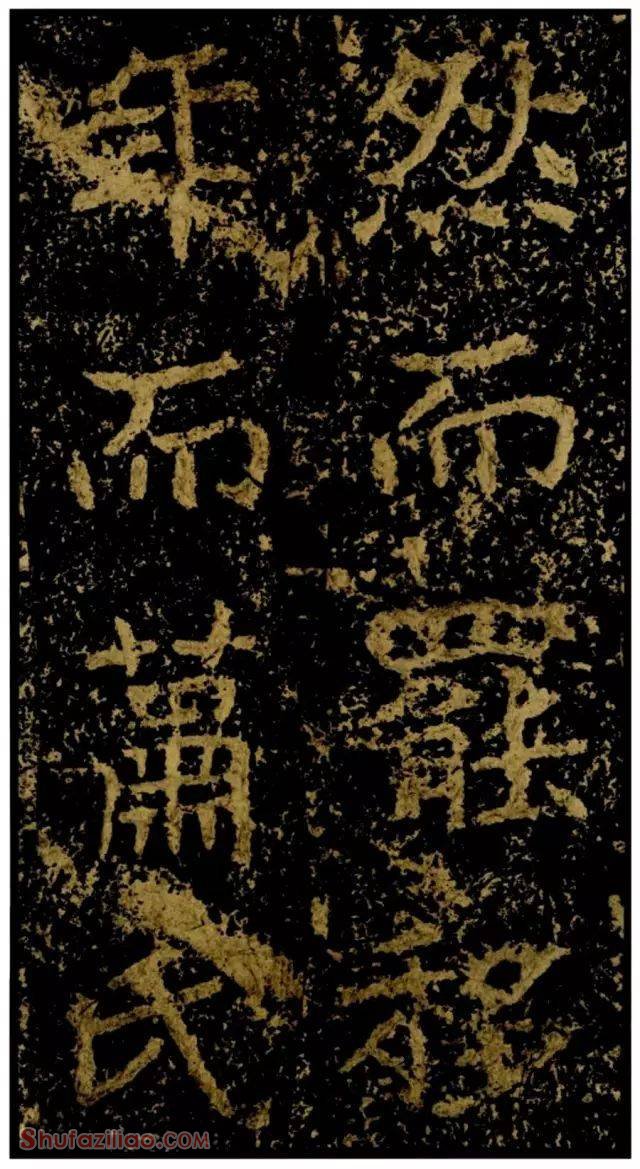 然而罷程
年而蕭氏
Shufaziliao.com